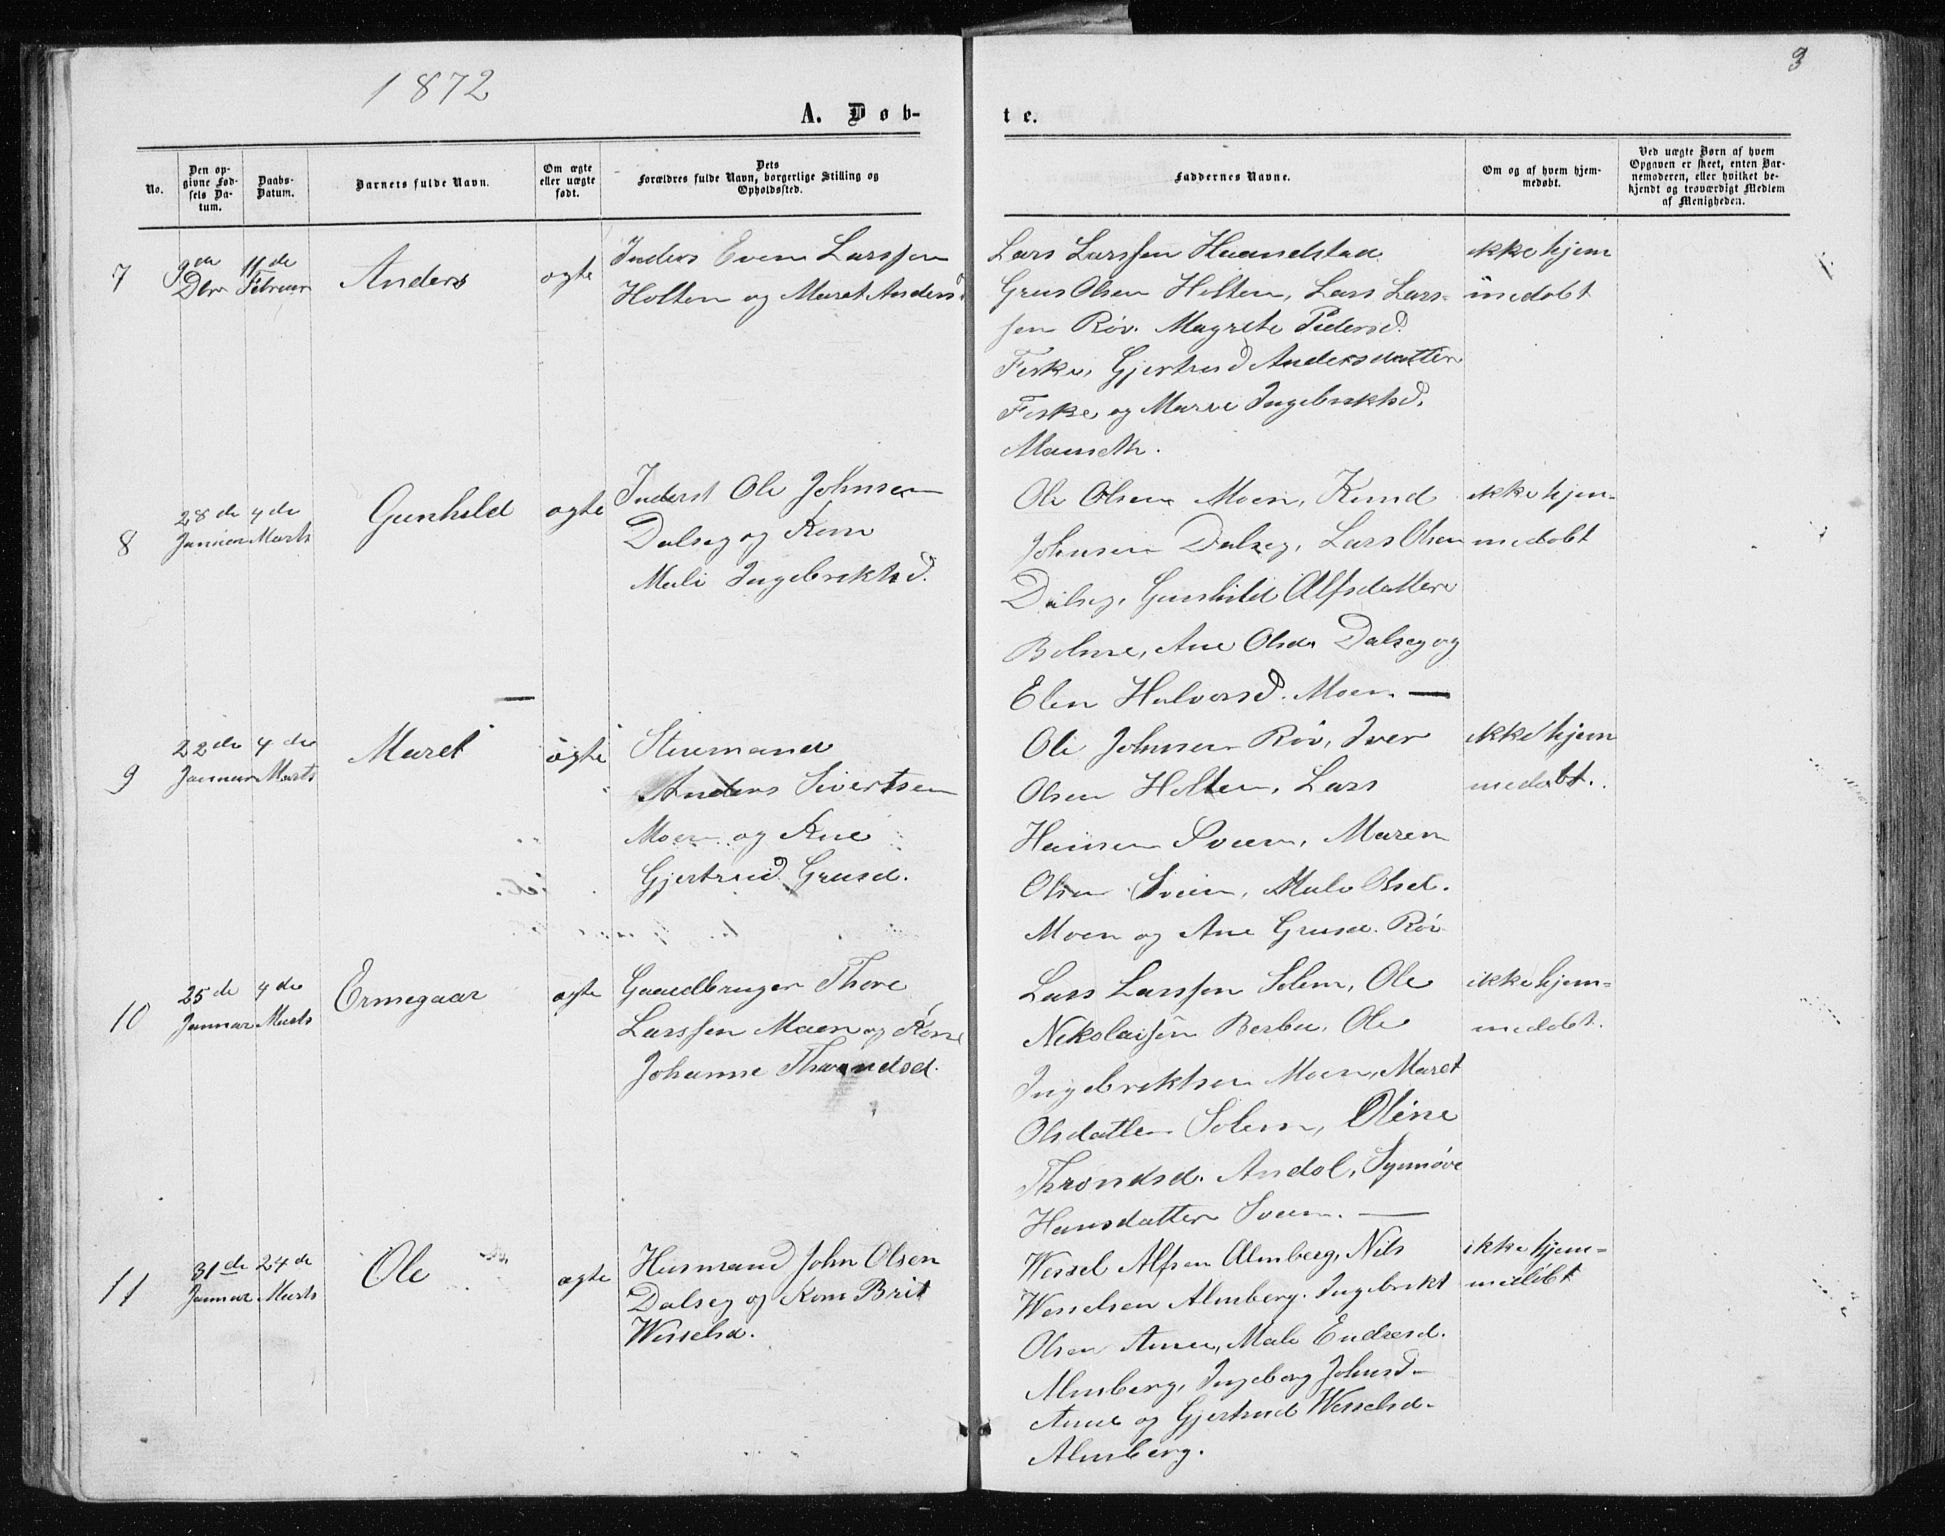 1872
3
A. Døb-
te.
No.
Den op-
givne Fød-
sels Da-
tum.
Daabs-
Datum.
Barnets fulde Navn.
Om ægte
eller uægte
født.
Dets
Forældres fulde Navn, borgerlige Stilling og
Opholdssted.
Faddernes Navne.
Om og af hvem hjem-
medøbt.
Ved uægte Børn af hvem
Opgaven er skeet, enten Bar-
nemoderen, eller hvilket be-
kjendt og troværdigt Medlem
af Menigheden.
7
9de
Dbr
11de
Februar
Anders
ægte
Inders Even Larssen
Holten og Maret Andersd.
Lars Larssen Haanstad
Grus Olsen Holten, Lars Lars-
sen Røv. Magrete Pedersd.
Feske, Gjertrud Andersdatter
Feske og Marre Ingebriktsd.
ikke hjem
medøbt
8
28de
Januar
4de
Marts
Gunhild
ægte
Inderst Ole Johnsen
Dalseg og Kom
Mali Ingebriktsd.
Ole Olsen Moen, Knud
Johnsen Dalseg, Lars Olsen
Dalseg, Gunhild Alfsdatter
Bolme, Ane Olsd. Dalseg og
Elen Halvorsd. Moen —
ikke hjem-
medøbt
9
22de
Januar
4de
Marts
Maret
ægte
Anders Sivertsen
Moen og Kne
Gjertrud Grusd.
Ole Johnsen Røv, Iver
Olsen Holten, Lars
Hansen Sveen, Maren
Olsen Sveen, Mali Olsd.
Moen og Ane Grusd. Røv
ikke hjem
medøbt.
10
25de
Januar
4de
Marts
Ermegaar
ægte
Gaardbruger Thore
Larssen Moen og Kone
Johanne Throndsd.
Lars Larssen Solem, Ole
Nikolaisen Berbu, Ole
Ingebriktsen Moen, Maret
Olsdatter Solem, Oline
Throndsd. Andol, Synnøve
Hansdatter Sveen. —
ikke hjem-
medøbt.
11
31de
Januar
24de
Marts
Ole
ægte
Husmand John Olsen
Dalseg og Kom Brit
Wesselsd.
Wessel Alfsen Almberg, Nils
Wesselsen Almberg. Ingebrikt
Olsen Aune, Mali Endresd.
Almberg, Ingeborg Johnsd.
Aune og Gjertrud Wesselsd.
Almberg.
ikke hjem-
medøbt